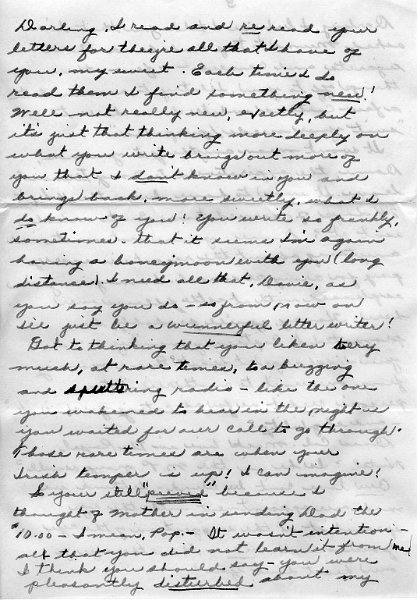 Darling, I read and re read your
letters for they're all that I have of
you, my sweet. Each time I do
read them I find something new!
Well not really new, exactly, but
it's just that thinking more deeply on
what you write brings out more of
you that I don't know in you and
brings back, more sweetly, what I
do know of you! You write so frankly,
sometimes, that it seems I'm again
having a honeymoon with you (long
distance). I need all that, Davie, as
you say you do - so from now on
I'll just be a wunnerful letter writer!
Got to thinking that you liken very
much, at rare times, to a buzzing
and sputtering radio - like the one
you wakened to hear in the night as
you waited for our call to go through!
Those rare times are when your
Irish temper is up! I can imagine!
Is your still "peeved" because I
thought of Mother in sending Dad the
$10.00 - I mean, Pop. - It wasn't intention -
all that you did not learn it from me!
I think you should say - you were
pleasantly disturbed about my